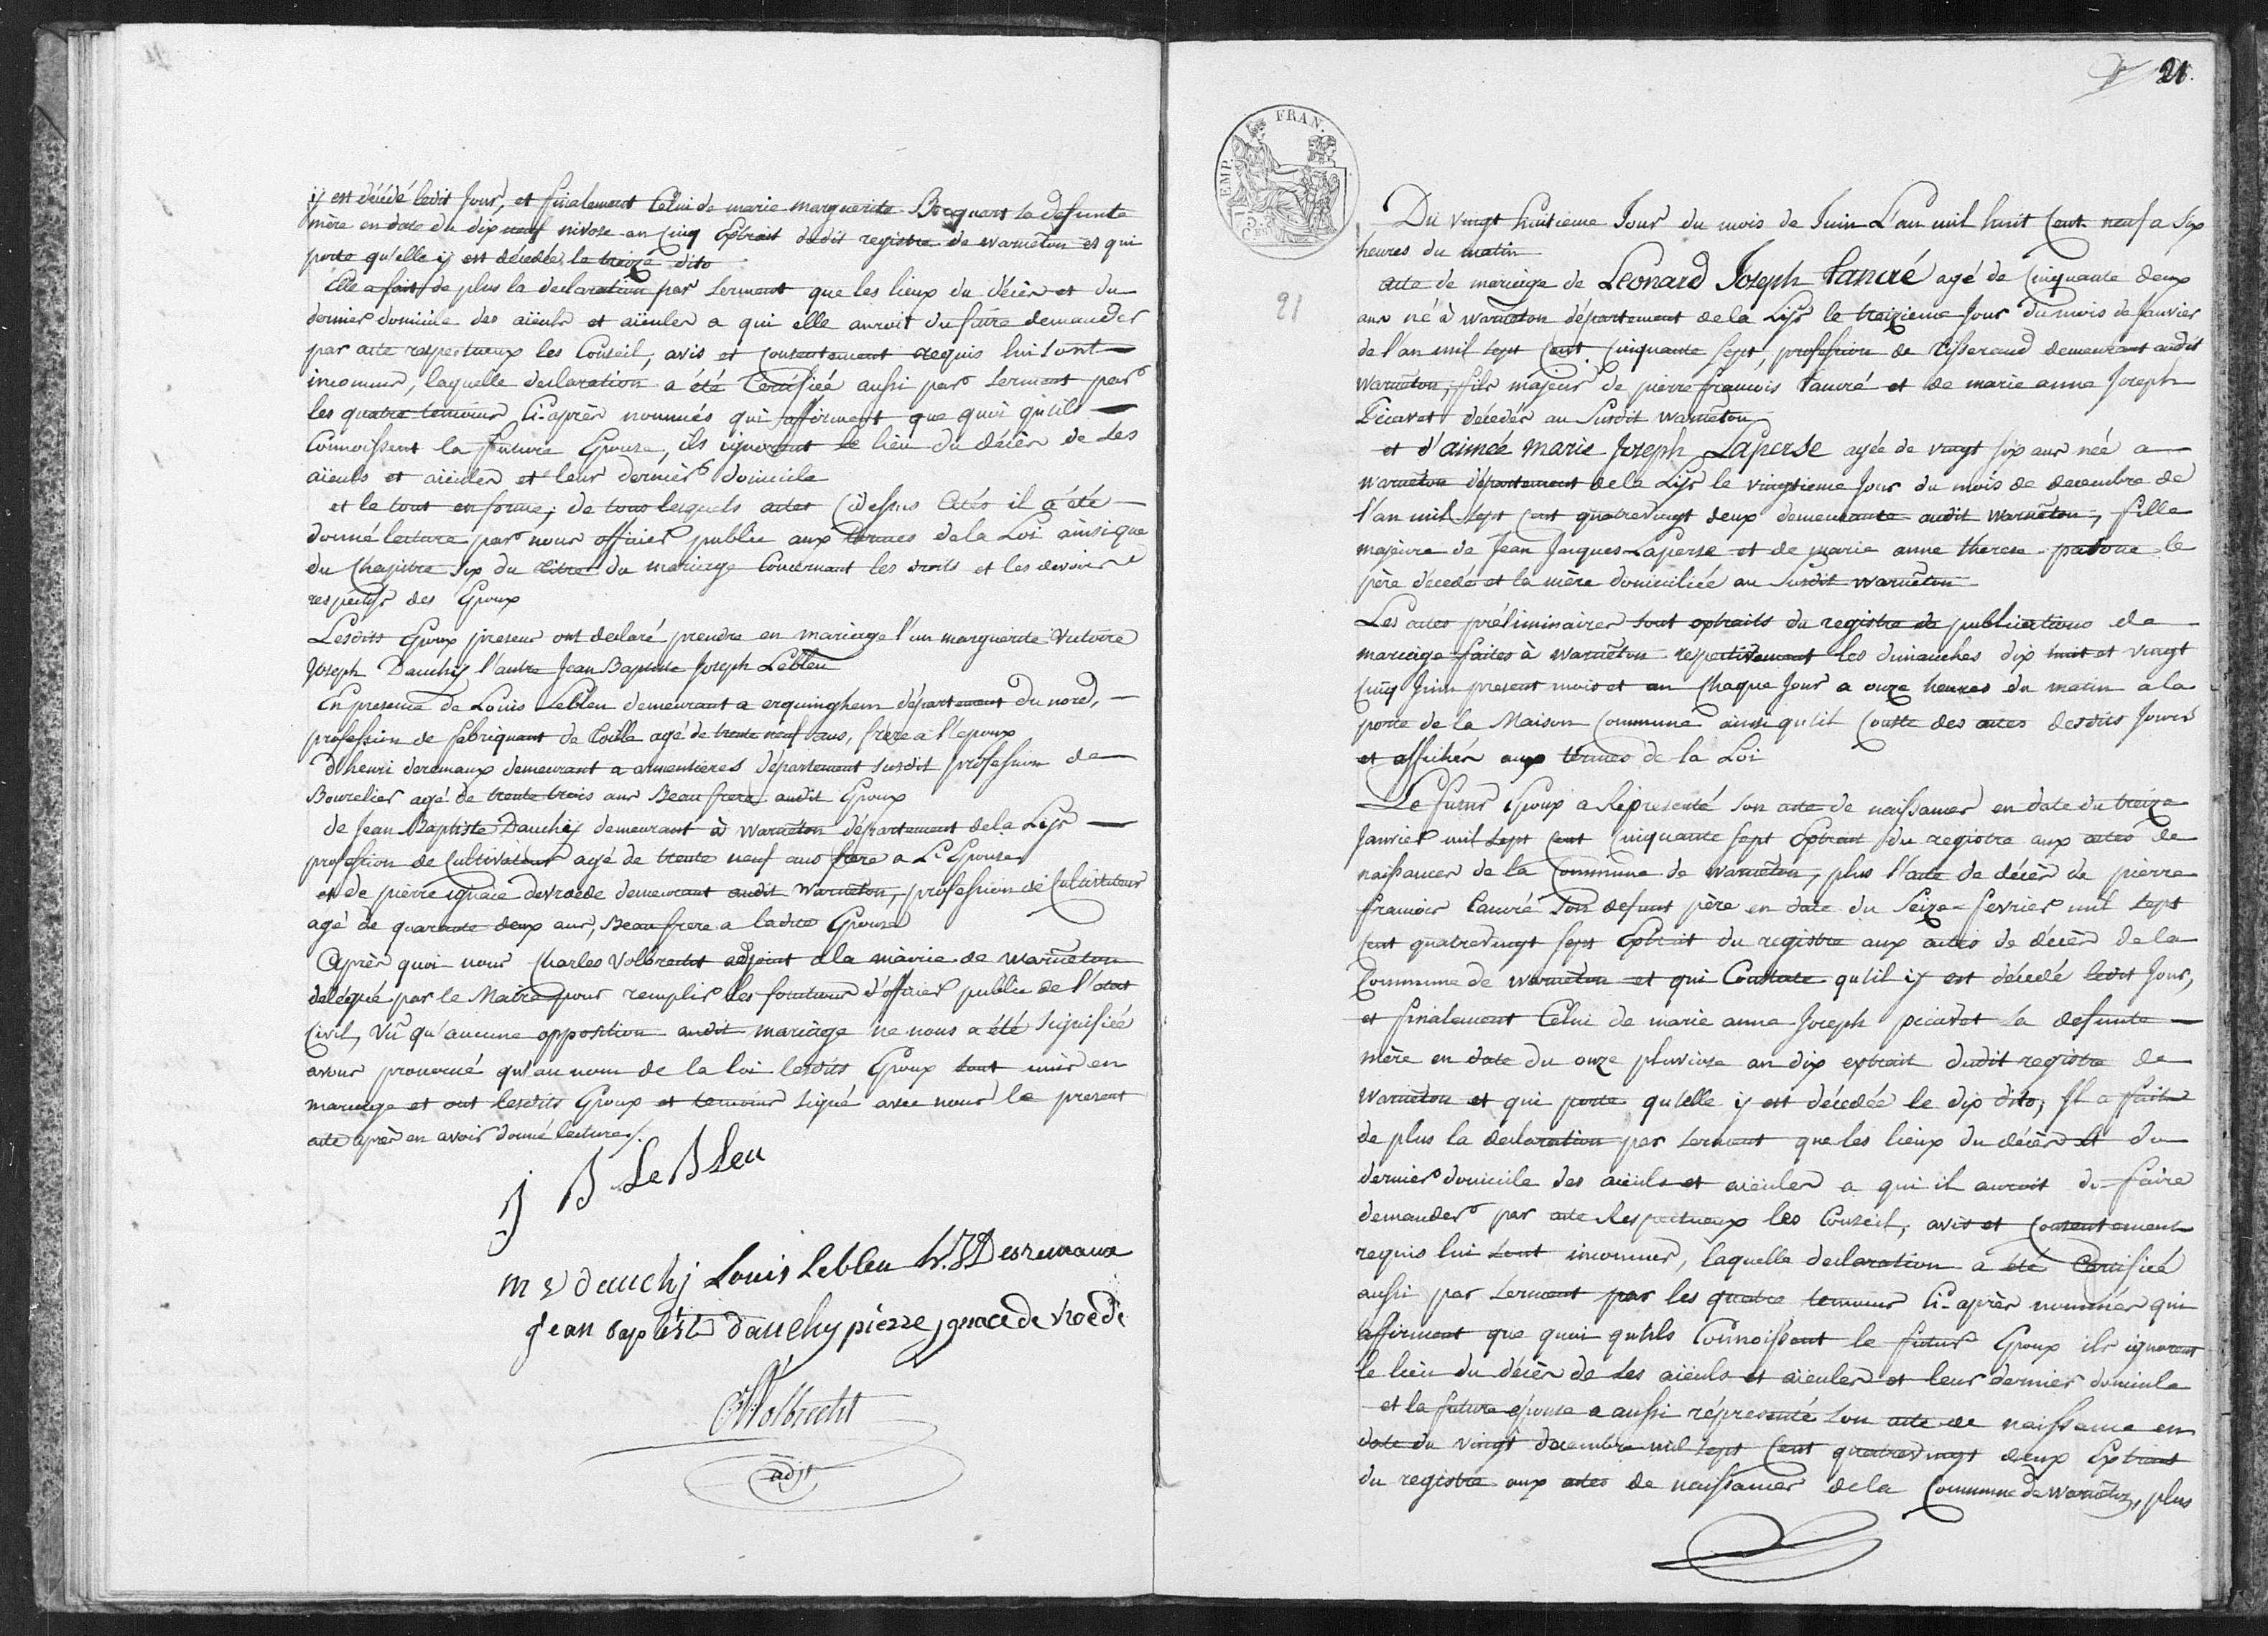 y est décédé ledit Jour, et finalement Celui de marie marguerite Bocquart sa defunte
mère en date du dix neuf nivose an Cinq Extrait dudit registre de warneton et qui
porte qu'elle y est décédée le treize dito
Elle a fait de plus la declaration par Serment que les lieux du décès et du
dernier domicile des aïeuls et aïeules a qui elle auroit du faire demander
par acte respectueux les Conseil, avis et Consentement requis lui sont
inconnus, laquelle declaration a été Certifiée aussi par Serment par
les quatre temoins Ci-après nommés qui affirment que quoi qu'ils
Connoissent la future Epouse, ils ignorent le lieu du décès de ses
aieuls et aieules et leur dernier domicile
et le tout en forme; de tous lesquels actes Cidessus Cités il a été
donné lecture par nous officier public aux termes de la Loi ainsi que
du Chapitre Six du titre du mariage Concernant les droits et les devoirs
respectifs des Epoux
Lesdits Epoux presens ont declaré prendre en mariage l'un marguerite Victoire
Joseph Dauchy l'autre Jean Baptiste Joseph Lebleu
En presence de Louis Lebleu demeurant a erquinghem département du nord,
profession de fabriquant de toille agé de trente neuf ans, frère a l'epoux
d'henri deremaux demeurant a armentieres département susdit profession de
Bourelier agé de trente trois ans Beau frere audit Epoux
de Jean Baptiste Dauchy demeurant à warneton département de la Lijs
profession de Cultivateur agé de trente neuf ans frere a L'Epouse
et de pierre ignace devroede demeurant audit warneton, profession de Cultivateur
agé de quarante deux ans, Beau frere a ladite Epouse
Après quoi nous Charles Volbrecht adjoint a la mairie de warneton
délégué par le Maire pour remplir les fonctions d'officier public de l'etat
Civil, Vu qu'aucune opposition audit mariage ne nous a été signifiée
avons prononcé qu'au nom de la loi lesdits Epoux sont unis en
mariage et ont lesdits Epoux et temoins signé avec nous le present
acte après en avoir donné lecture
j B LeBLeu
m v dauchj Louis Lebleu h. J Desremaux
jean baptiste dauchy pierre jgnace de vroede
CVolbrecht
adjt
21
EMP. FRAN.
21
Du vingt huitieme Jour du mois de Juin L'an mil huit Cent neuf a Six
heures du matin
acte de mariage de Leonard Joseph tancré agé de Cinquante deux
ans né à warneton département de la Lijs le treizieme Jour du mois de Janvier
de l'an mil sept Cent Cinquante Sept, profession de tisserand demeurant audit
warneton, fils majeur de pierre francois tancré et de marie anne Joseph
Picavet décédés au Susdit warneton
et d'aimée marie Joseph Laperse agée de vingt six ans née a
warneton département de la Lijs le vingtieme Jour du mois de decembre de
l'an mil sept Cent quatrevingt deux demeurante audit warneton, fille
majeure de Jean Jacques Laperse et de marie anne therese le
père décédé et la mère domiciliée au Susdit warneton
Les actes préliminaires sont extraits du registre de publications de
mariage faites à warneton respectivement les dimanches dix huit et vingt
Cinq Juin present mois et an Chaque Jour a onze heures du matin a la
porte de la Maison Commune ainsi qu'il Conste des actes desdits Jours
et affichés aux termes de la Loi
Le futur Epoux a Representé son acte de naissance en date du treize
Janvier mil Sept Cent Cinquante sept Extrait du registre aux actes de
naissances de la Commune de warneton, plus l'acte de décès de pierre
francois tancré Son defunt père en date du Seize fevrier mil Sept
Cent quatrevingt sept Extrait du registre aux actes de décès de la
Commune de warneton et qui Constate qu'il y est décédé ledit Jour,
et finalement Celui de marie anne Joseph picavet sa defunte
mère en date du onze pluviose an dix extrait dudit registre de
warneton et qui porte qu'elle y est décédée le dix dito; Il a fait
de plus la declaration par Serment que les lieux du décès et du
dernier domicile des aieuls et aieules a qui il auroit du faire
demander par acte Respectueux les Conseil, avis et Consentement
requis lui sont inconnus, laquelle declaration a été Certifiée
aussi par Serment par les quatre temoins Ci-après nommés qui
affirment que quoi qu'ils Connoissent le futur Epoux ils ignorent
le lieu du décès de ses aieuls et aieules et leur dernier domicile
et la future epouse a aussi répresenté son acte de naissance en
date du vingt decembre mil sept Cent quatrevingt deux Extrait
du registre aux actes de naissances de la Commune de warneton, plus